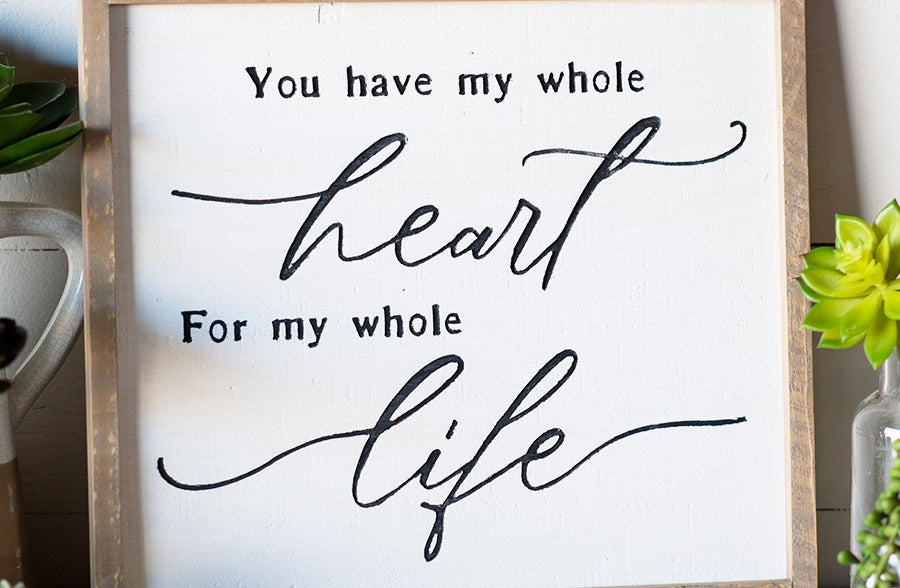 You have my whole
heart
For my whole
life